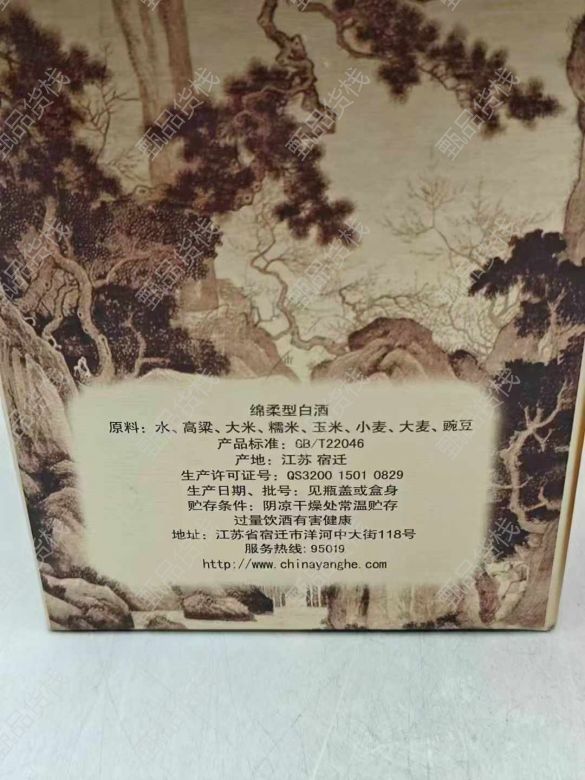 绵柔型白酒
原料：水、高粱、大米、糯米、玉米、小麦、大麦、豌豆
产品标准：GB/T22046
产地：江苏 宿迁
生产许可证号：QS3200 1501 0829
生产日期、批号：见瓶盖或盒身
贮存条件：阴凉干燥处常温贮存
过量饮酒有害健康
地址：江苏省宿迁市洋河中大街118号
服务热线：95019
http://www.chinayanghe.com
甄品货栈